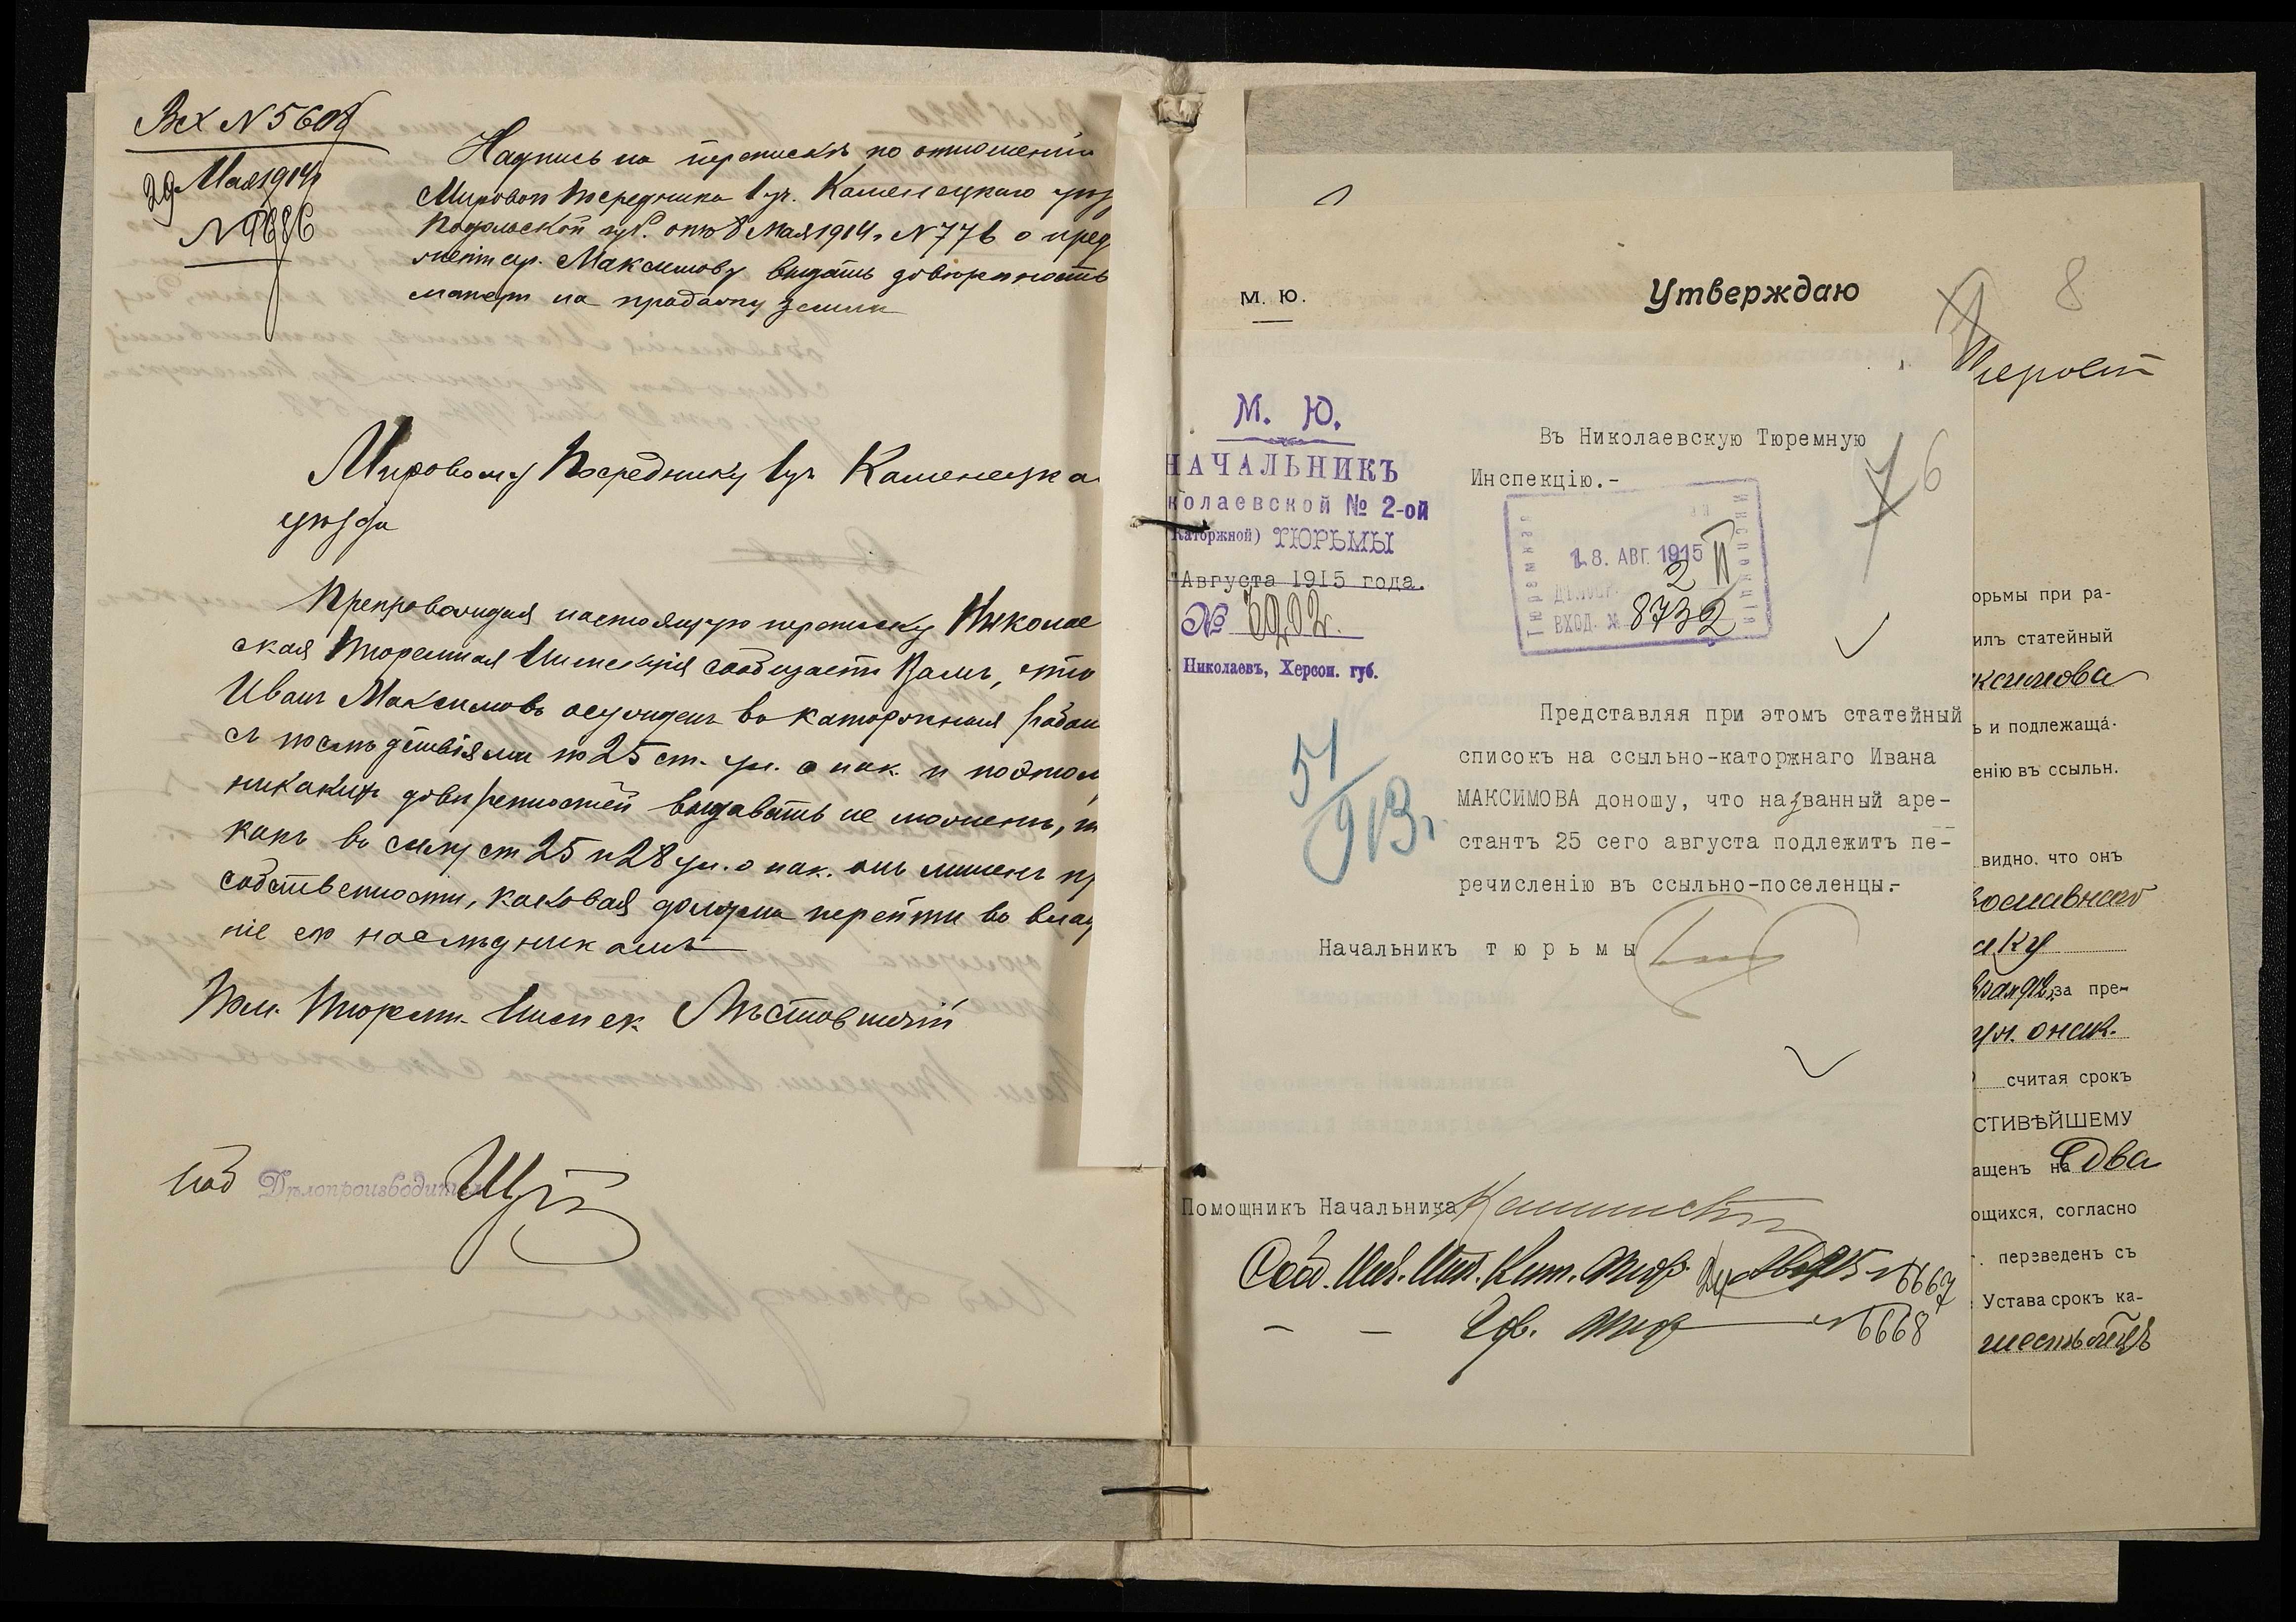 Вх N 5608
29 Мая 1914
N 9686
Надпись на переписке по отношению
Мирового Посредника 1 уч. Каменецкаго уез
Подольской губ. от 8 Мая 1914 г. N 776 о пред
Максимову выдать доверенность
на продажу земли
Мировому Посреднику 1 уч Каменецка
уезда
Препровождая настоящую переписку Николаев
ская Тюремная Инспекция сообщаетъ Вамъ, что
Иванъ Максимовъ осужденъ въ каторжныя работ
съ последствиями по 25 ст. ул. о нак. и поэтом
никакихъ доверенностей выдавать не можетъ, т
какъ въ силу ст 25 и 28 ул. о нак. онъ лишенъ пр
собственности, каковая должна перейти во влад
ніе его наследникамъ
Пом. Тюремн. Инспек.
Делопроизводител
М. Ю.
Утверждаю
8
М. Ю.
НАЧАЛЬНИКЪ
колаевской № 2-ой
Каторжной) ТЮРЬМЫ
" Августа 1915 года.
№ 5202.
Николаевъ, Херсон. губ.
Въ Николаевскую Тюремную
Инспекцію.-
7 6
Тюремная Инспекція
18. АВГ. 1915
2
ВХОД. № 8732
51/913 г.
Представляя при этомъ статейный
списокъ на ссыльно-каторжнаго Ивана
МАКСИМОВА доношу, что названный аре-
стантъ 25 сего августа подлежит пе-
речисленію въ ссыльно-поселенцы.-
Начальникъ тюрьмы
Помощникъ Начальника
N 6667
N 6668
орьмы при ра-
илъ статейный
ксимова
ь и подлежаща-
енію въ ссыльн.
видно, что онъ
вославнаго
за пре-
ул. о нак.
считая срокъ
СТИВѢЙШЕМУ
ащенъ на два
ощихся, согласно
. переведенъ съ
Устава срокъ ка-
шесть